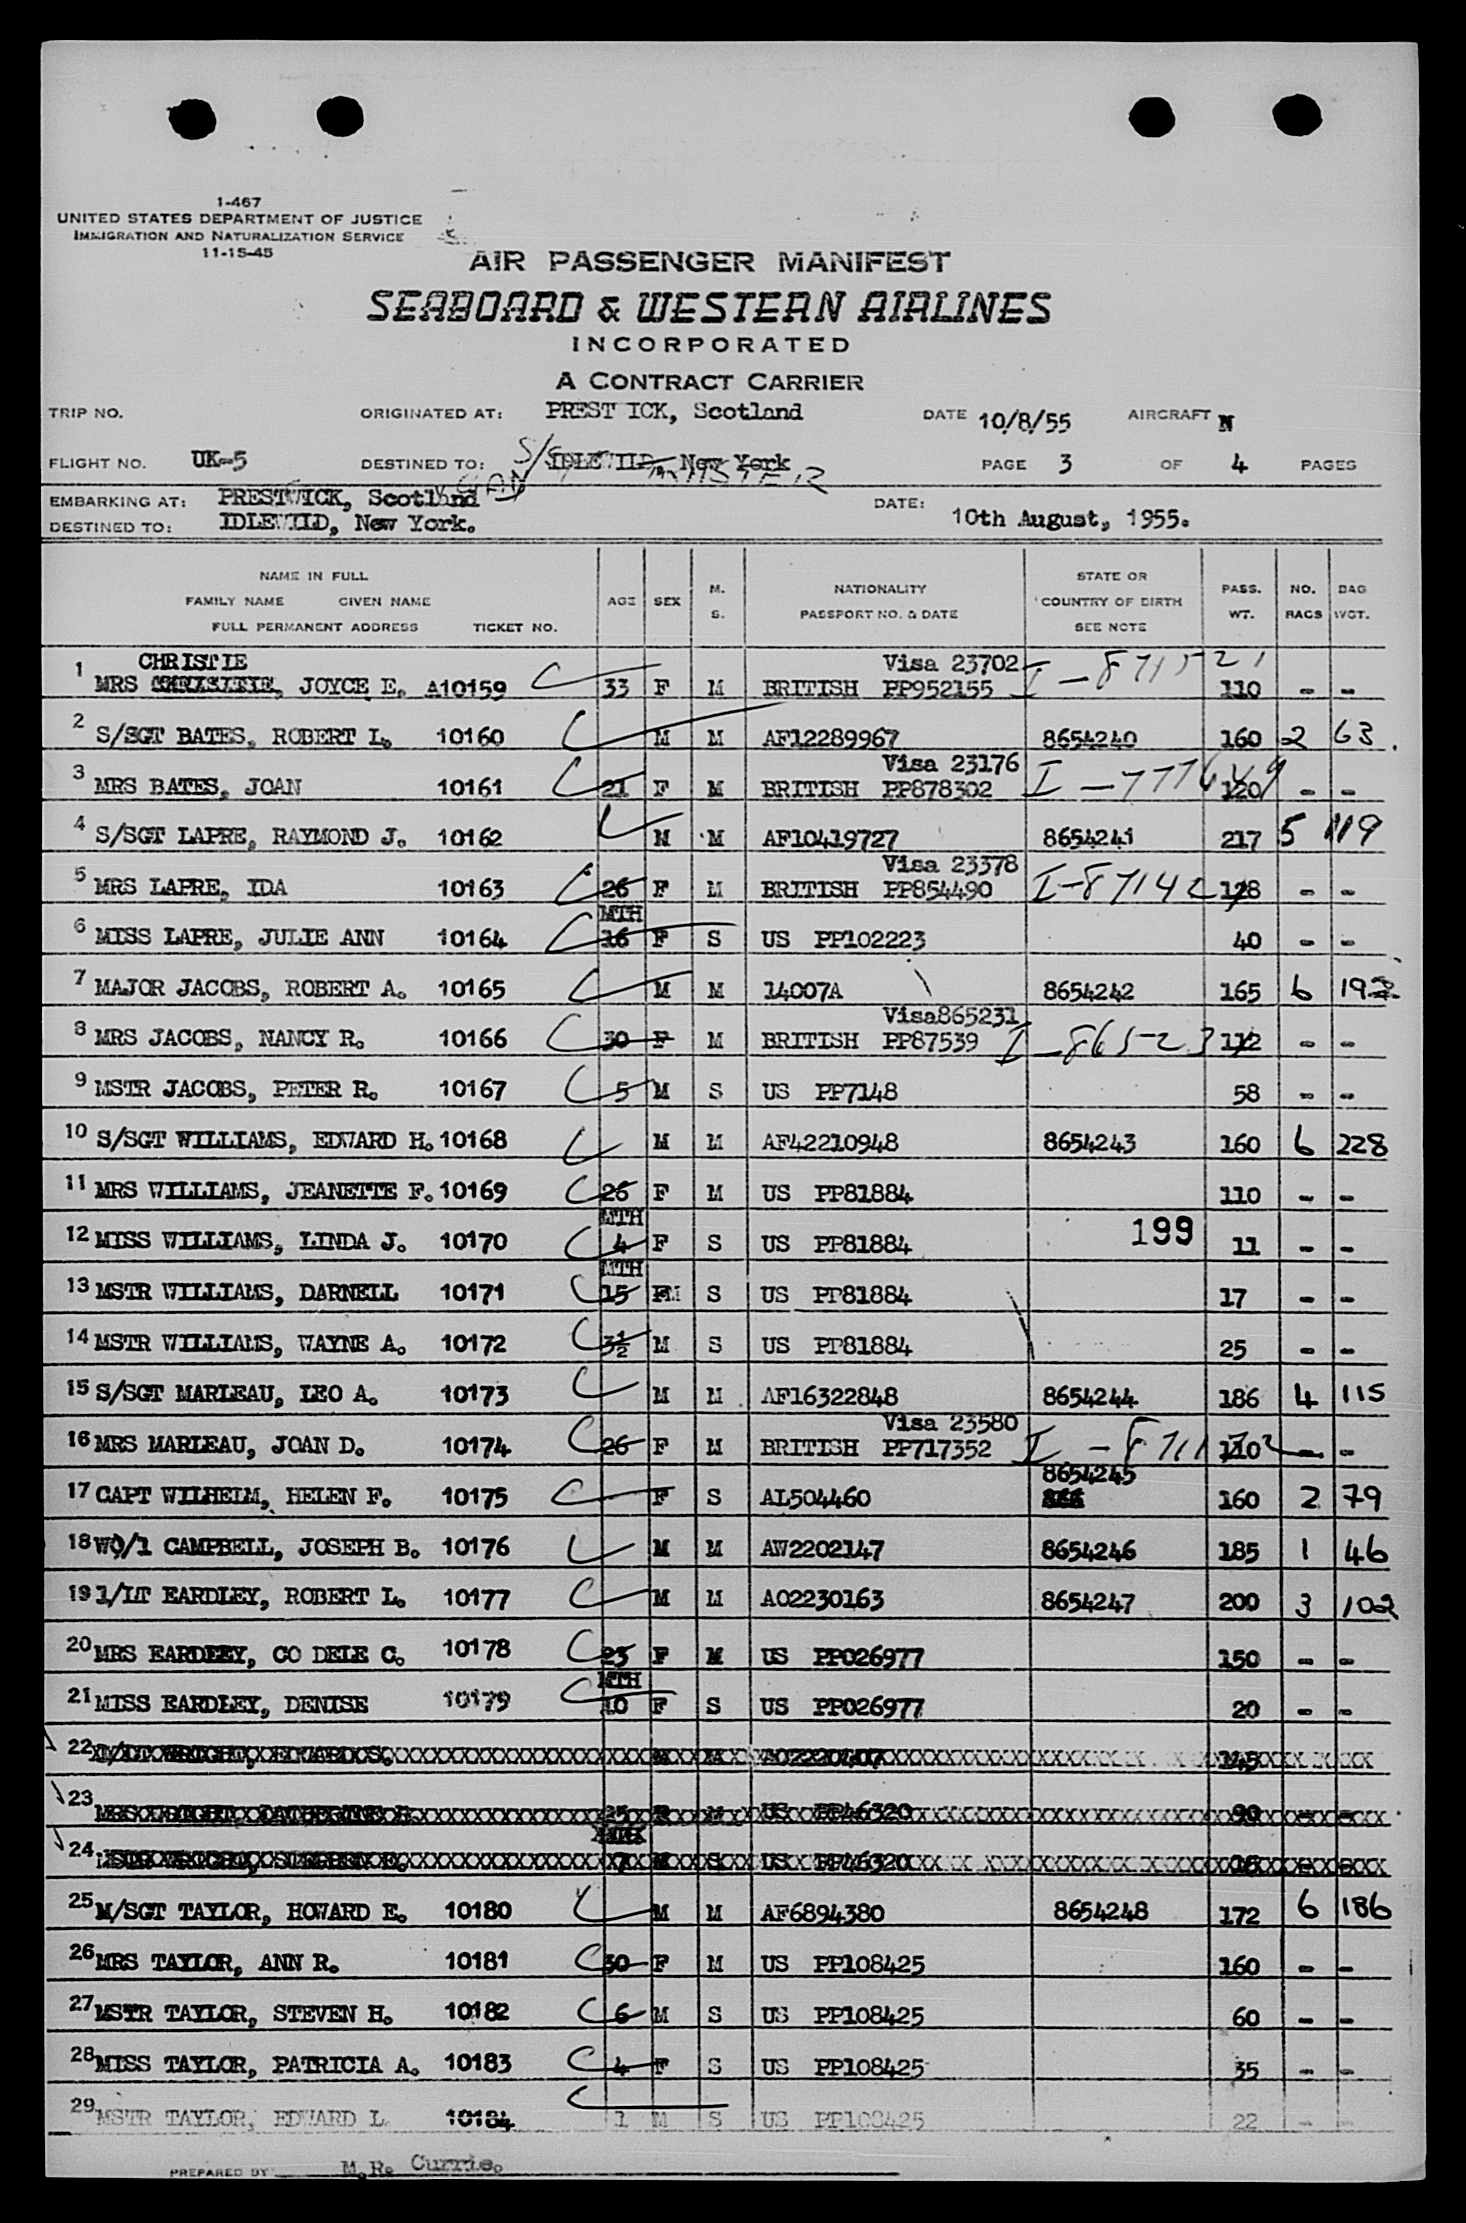 1-467
UNITED STATES DEPARTMENT OF JUSTICE
IMMIGRATION AND NATURALIZATION SERVICE
11-15-45
AIR PASSENGER MANIFEST
SEABOARD & WESTERN AIRLINES
INCORPORATED
A CONTRACT CARRIER
TRIP NO. ORIGINATED AT: PRESTICK, Scotland DATE 10/8/55 AIRCRAFT N
FLIGHT NO. UK-5 DESTINED TO: IDLEWILD, New York PAGE 3 OF 4 PAGES
EMBARKING AT: PRESTWICK, Scotland DATE: 10th August, 1955.
DESTINED TO: IDLEWILD, New York.
NAME IN FULL FAMILY NAME GIVEN NAME FULL PERMANENT ADDRESS TICKET NO. AGE SEX M. S. NATIONALITY PASSPORT NO. & DATE STATE OR COUNTRY OF BIRTH SEE NOTE PASS. WT. NO. BAGS BAG WGT.
CHRISTIE Visa 23702
1 MRS JOYCE E. A10159 33 F M BRITISH PP952155 I-871521 110 - -
2 S/SGT BATES, ROBERT L. 10160 M M AF12289967 8654240 160 2 63
Visa 23176
3 MRS BATES, JOAN 10161 21 F M BRITISH PP878302 120 - -
4 S/SGT LAPRE, RAYMOND J. 10162 M M AF10419727 8654241 217 5 119
Visa 23378
5 MRS LAPRE, IDA 10163 26 F M BRITISH PP854490 I-87142 128 - -
MTH
6 MISS LAPRE, JULIE ANN 10164 16 F S US PP102223 40 - -
7 MAJOR JACOBS, ROBERT A. 10165 M M 14007A 8654242 165 6
Visa865231
8 MRS JACOBS, NANCY R. 10166 30 F M BRITISH PP87539 I-86523 112 - -
9 MSTR JACOBS, PETER R. 10167 5 M S US PP7148 58 - -
10 S/SGT WILLIAMS, EDWARD H. 10168 M M AF42210948 8654243 160 6 228
11 MRS WILLIAMS, JEANETTE F. 10169 26 F M US PP81884 110 - -
MTH
12 MISS WILLIAMS, LINDA J. 10170 4 F S US PP81884 199 11 - -
MTH
13 MSTR WILLIAMS, DARNELL 10171 15 FM S US PP81884 17 - -
14 MSTR WILLIAMS, WAYNE A. 10172 3½ M S US PP81884 25 - -
15 S/SGT MARLEAU, LEO A. 10173 M M AF16322848 8654244 186 4 115
Visa 23580
16 MRS MARLEAU, JOAN D. 10174 26 F M BRITISH PP717352 110 - -
8654245
17 CAPT WILHEIM, HELEN F. 10175 F S AL504460 160 2 79
18 WO/1 CAMPBELL, JOSEPH B. 10176 M M AW2202147 8654246 185 1 46
19 1/LT EARDLEY, ROBERT L. 10177 M M AO2230163 8654247 200 3 102
20 MRS EARDLEY, CO DELE C. 10178 23 F M US PP026977 150 - -
MTH
21 MISS EARDLEY, DENISE 10179 10 F S US PP026977 20 - -
22 145
23 MRS 25 US PP46320 90 - -
24 7 US PP46320 - -
25 M/SGT TAYLOR, HOWARD E. 10180 M M AF6894380 8654248 172 6 186
26 MRS TAYLOR, ANN R. 10181 30 F M US PP108425 160 - -
27 MSTR TAYLOR, STEVEN H. 10182 6 M S US PP108425 60 - -
28 MISS TAYLOR, PATRICIA A. 10183 4 F S US PP108425 35 - -
29 MSTR TAYLOR, EDWARD L. 10184 1 M S US PP108425 22 - -
PREPARED BY M.R. Currie.